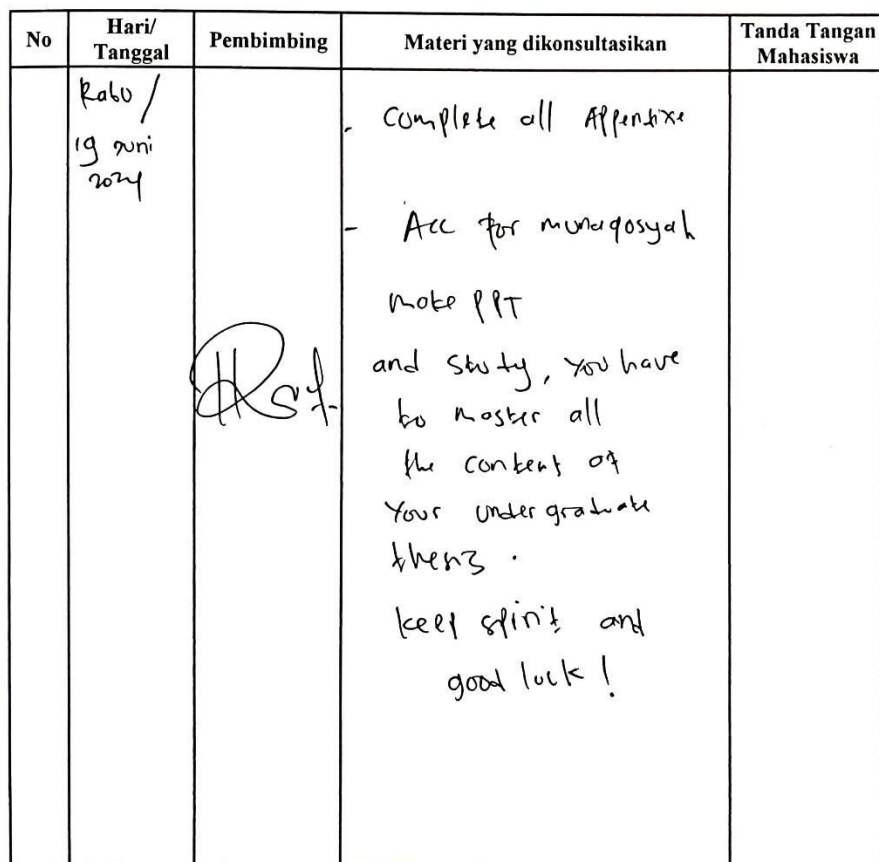 No
Hari/
Tanggal
Pembimbing
Materi yang dikonsultasikan
Tanda Tangan
Mahasiswa
Rabu /
19 Juni
2024
- Complete all Appendixe
- Acc for munaqosyah
make PPT
and study, you have
to master all
the content of
your undergraduate
thesis.
keep spirit and
good luck!